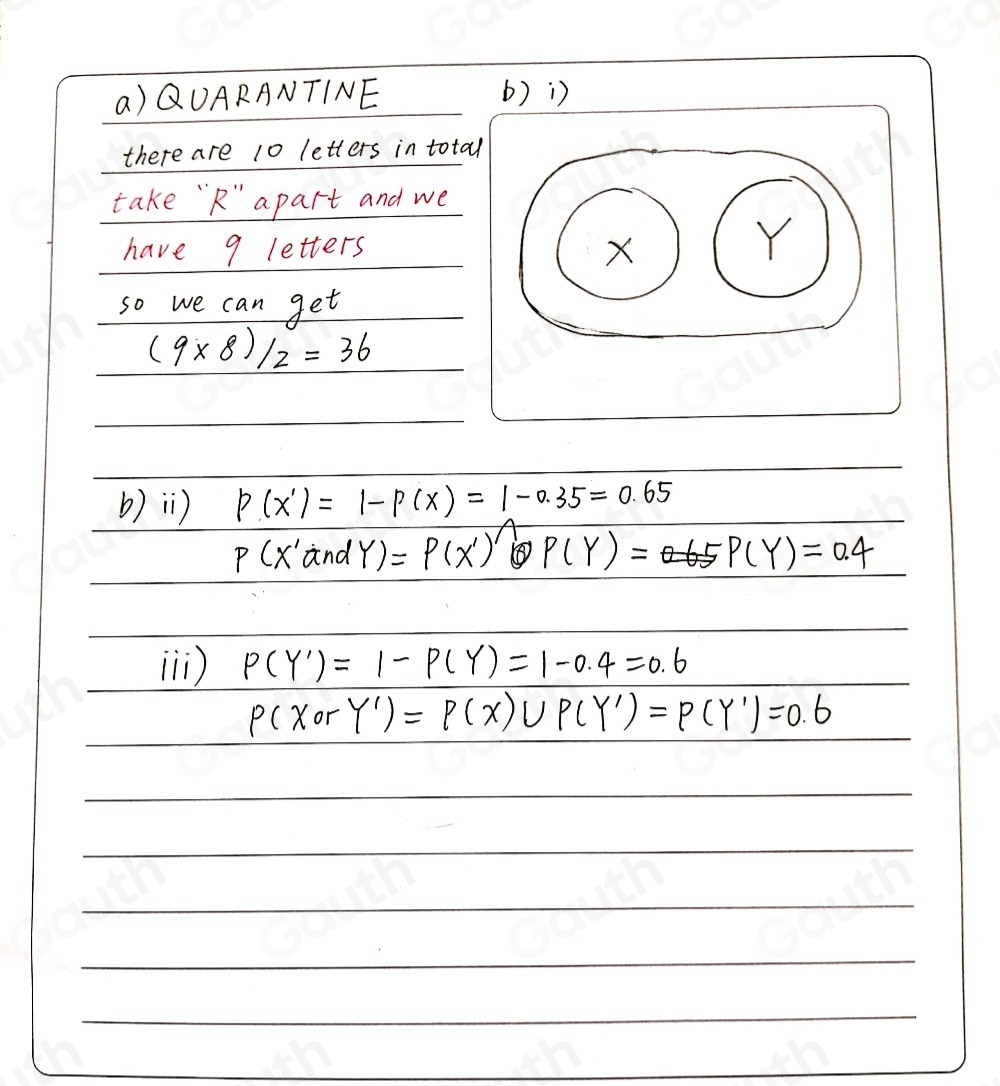 a) QUARANTINE
there are 10 letters in total
take "R" apart and we
have 9 letters
so we can get
(9×8)/2 = 36
b) i)
X
Y
b) ii) P(X') = 1-P(X) = 1-0.35 = 0.65
P(X' and Y) = P(X') ∩ P(Y) = 0.65 P(Y) = 0.4
iii) P(Y') = 1 - P(Y) = 1-0.4 = 0.6
P(X or Y') = P(X) U P(Y') = P(Y') = 0.6
Gauth